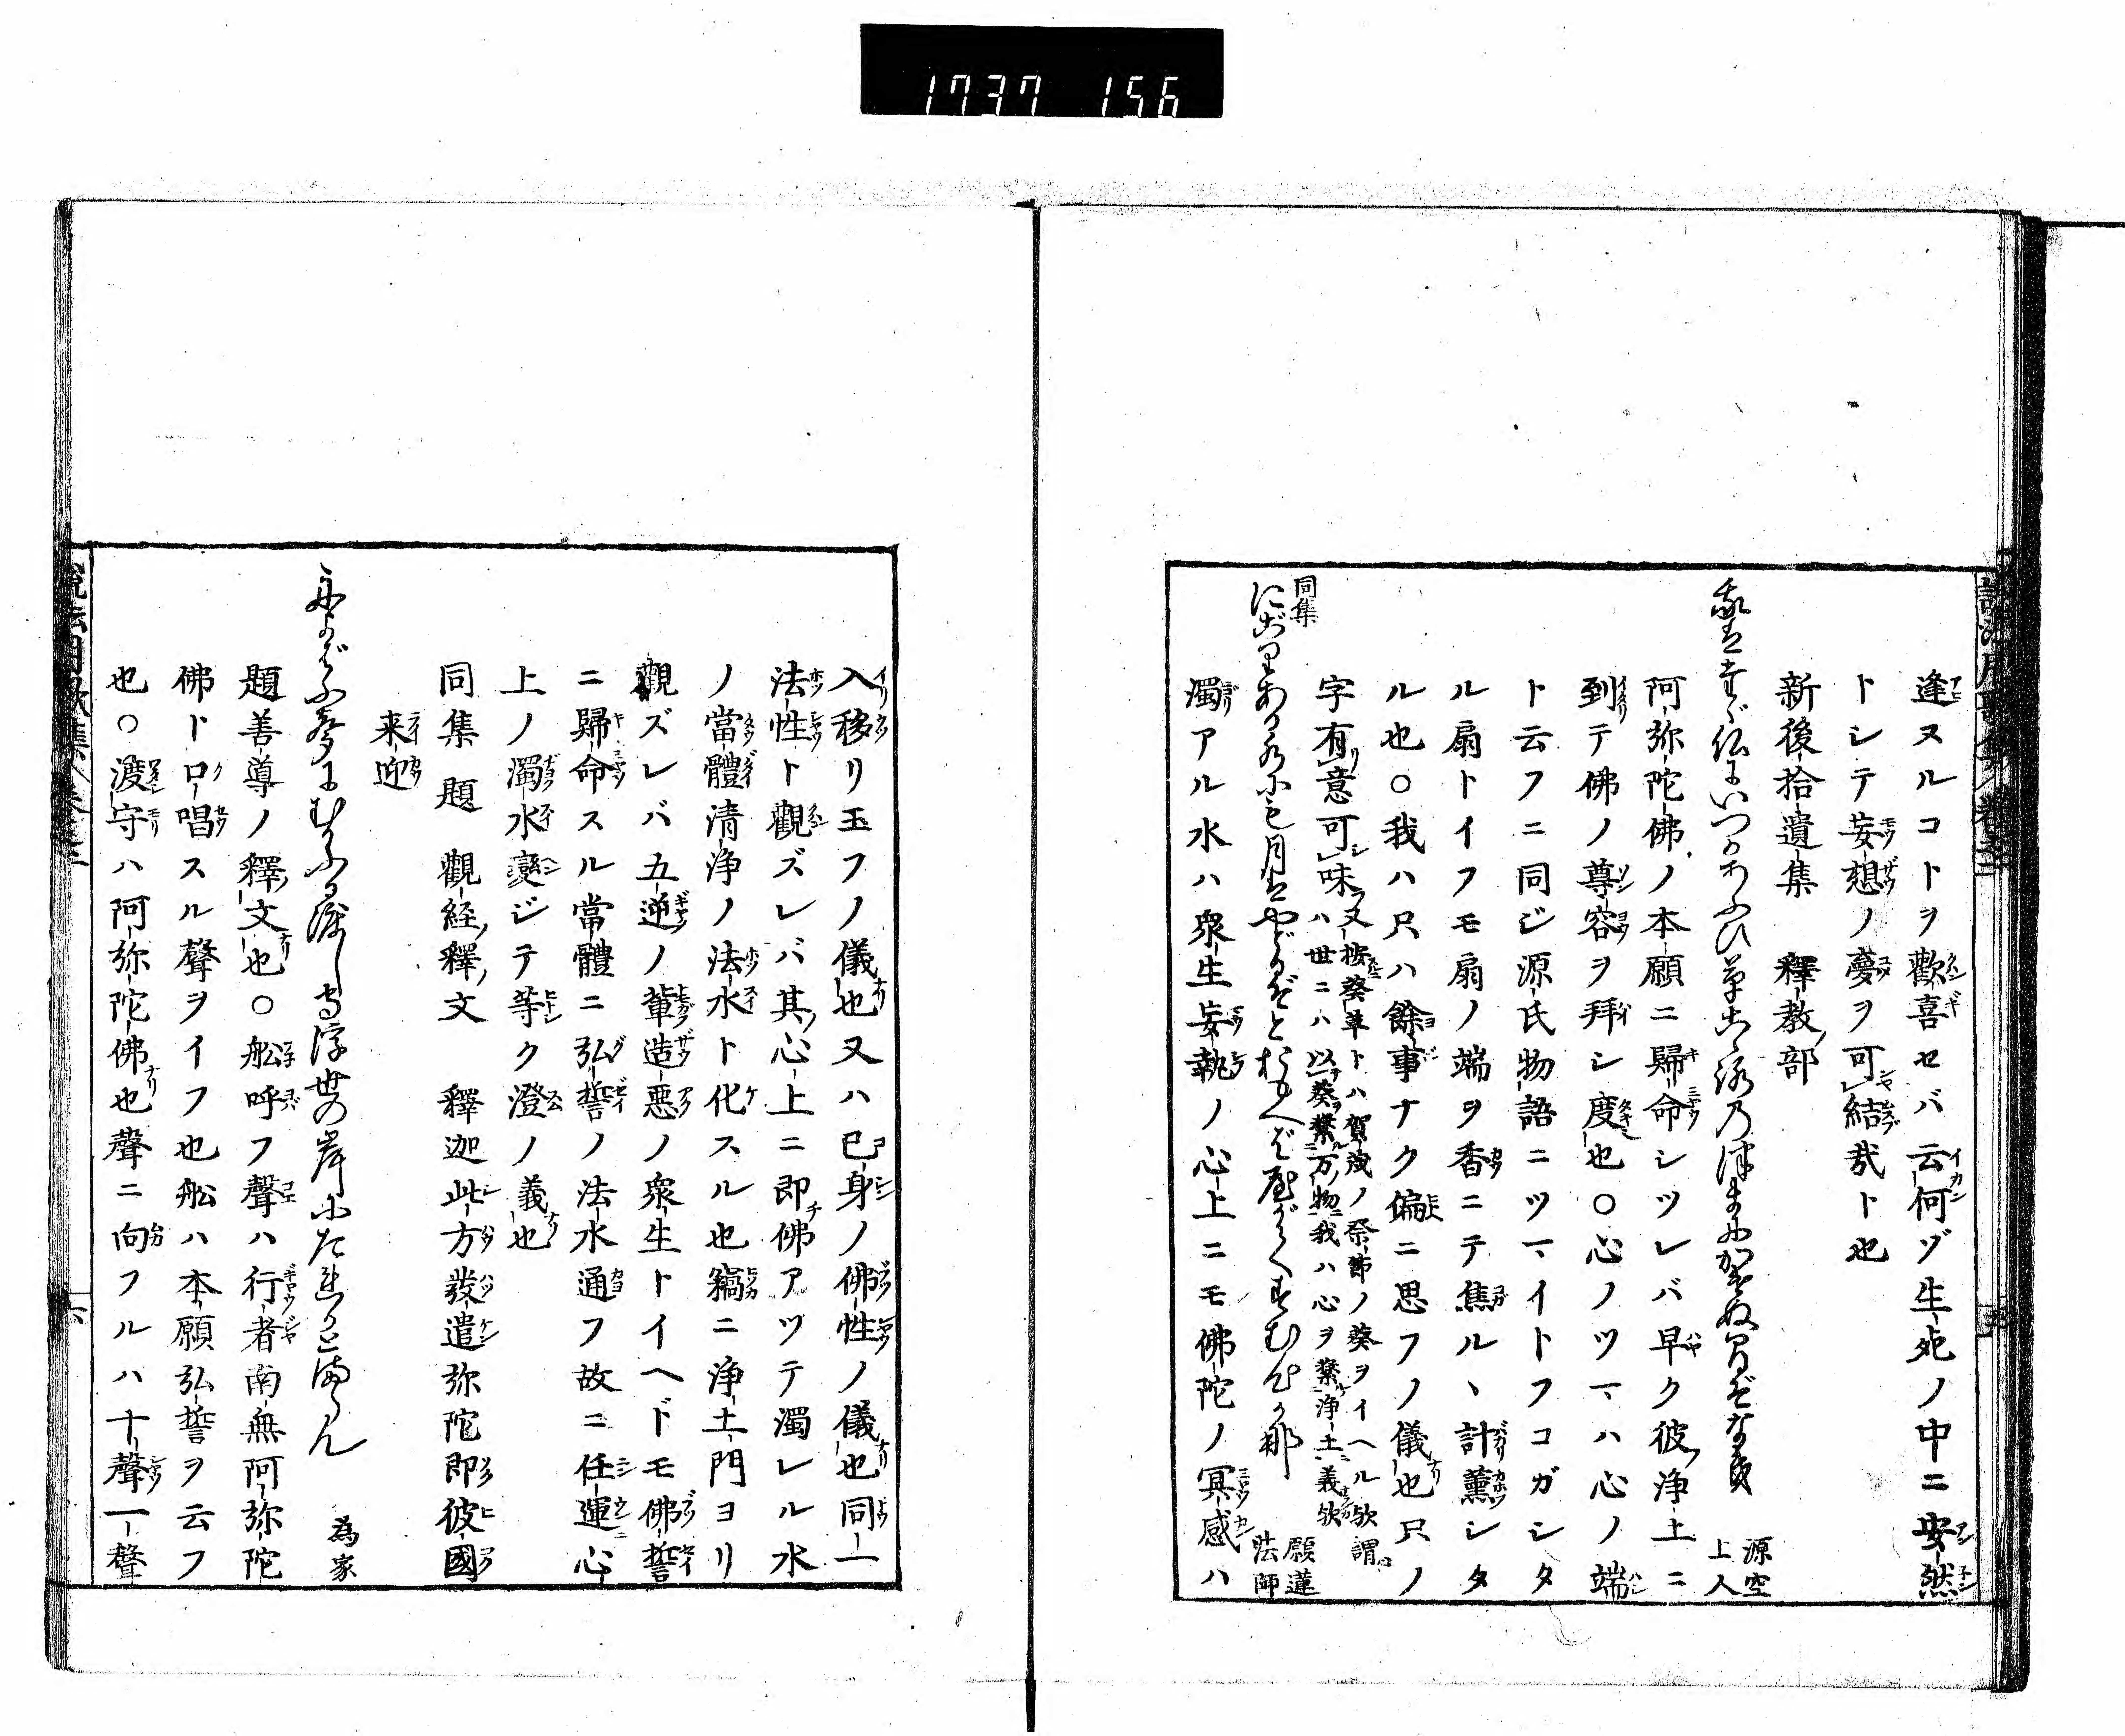 1737 156
逢ヌルコトヲ歡喜セバ云何ゾ生死ノ中ニ安然
トシテ妄想ノ夢ヲ可結哉ト也
新後拾遺集 釋教部
我はたゞ仏にいつかあふひ草こゝろのつまにかけぬ日ぞなき 源空上人
阿弥陀佛ノ本願ニ歸命シツレバ早ク彼浄土ニ
到テ佛ノ尊容ヲ拜シ度也○心ノツマハ心ノ端
ト云フニ同ジ源氏物語ニツマイトフコガシタ
ル扇トイフモ扇ノ端ヲ香ニテ焦ルヽ計薫シタ
ル也○我ハ只ハ餘事ナク偏ニ思フノ儀也只ノ
字有意可味又按葵草トハ賀茂ノ祭節ノ葵ヲイヘル歟謂心
ハ世ニハ以葵繋万物我ハ心ヲ繋浄土義歟
同集
にごりある水にも月はやどるぞとおもへばやがてすむ心か那 願蓮法師
濁アル水ハ衆生妄執ノ心上ニモ佛陀ノ冥感ハ
入移リ玉フノ儀也又ハ己身ノ佛性ノ儀也同一
法性ト觀ズレバ其心上ニ即佛アツテ濁レル水
ノ當體清浄ノ法水ト化スル也竊ニ浄土門ヨリ
觀ズレバ五逆ノ輩造悪ノ衆生トイヘドモ佛誓
ニ歸命スル當體ニ弘誓ノ法水通フ故ニ任運心
上ノ濁水變ジテ等ク澄ノ義也
同集 題 觀経釋文 釋迦此方發遣弥陀即彼國
来迎
舟よばふ聲にむかふる渡し守浮世の岸にたれかとまらん 為家
題善導ノ釋文也○舩呼フ聲ハ行者南無阿弥陀
佛ト口唱スル聲ヲイフ也舩ハ本願弘誓ヲ云フ
也○渡守ハ阿弥陀佛也聲ニ向フルハ十聲一聲